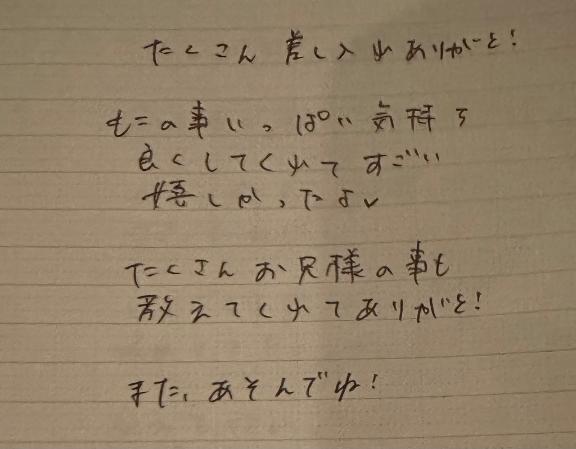 たくさん 差し入れありがと!
もこの事いっぱい気持ち
良くしてくれてすごい
嬉しかったよ
たくさんお兄様の事も
教えてくれてありがと!
また、あそんでね!